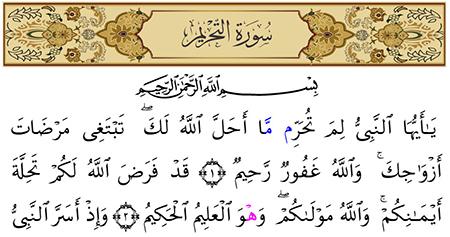 سُورَةُ التَّحْرِيمِ
بِسْمِ ٱللَّهِ ٱلرَّحْمَٰنِ ٱلرَّحِيمِ
يَـٰٓأَيُّهَا ٱلنَّبِىُّ لِمَ تُحَرِّمُ مَآ أَحَلَّ ٱللَّهُ لَكَ ۖ تَبْتَغِى مَرْضَاتَ
أَزْوَٰجِكَ ۚ وَٱللَّهُ غَفُورٌ رَّحِيمٌ ﴿١﴾ قَدْ فَرَضَ ٱللَّهُ لَكُمْ تَحِلَّةَ
أَيْمَـٰنِكُمْ ۚ وَٱللَّهُ مَوْلَىٰكُمْ ۖ وَهُوَ ٱلْعَلِيمُ ٱلْحَكِيمُ ﴿٢﴾ وَإِذْ أَسَرَّ ٱلنَّبِىُّ